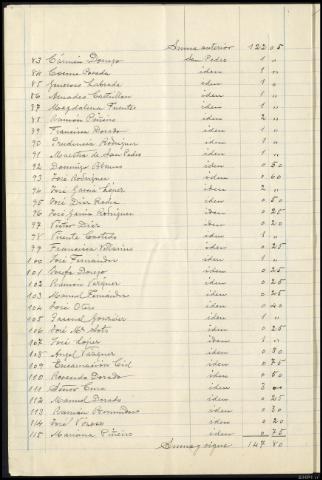 Suma anterior 122 05
83 Carmen Dorrego San Pedro 1 "
84 Cosme Parada idem 1 "
85 Generoso Labrada idem 1 "
86 Amadeo Castrillon idem 1 "
87 Magdalena Fuentes idem 1 "
88 Ramón Piñeiro idem 2 "
89 Francisca Dorado idem 1 "
90 Prudencia Rodriguez idem 1 "
91 Maestra de San Pedro idem 1 "
92 Domingo Blanco idem 0 50
93 José Rodriguez idem 0 60
94 José Garcia López idem 2 "
95 José Diaz idem 0 50
96 José Garcia Rodriguez idem 0 25
97 Victor Diaz idem 0 20
98 Vicente idem 1 "
99 Francisca idem 0 25
100 José Fernandez idem 1 "
101 Dorrego idem 0 25
102 Ramon Vazquez idem 0 25
103 Manuel Fernandez idem 0 25
104 José Otero idem 0 40
105 Gonzalez idem 1 "
106 José Mª Soto idem 0 25
107 José Lopez idem 1 "
108 Angel Vazquez idem 0 50
109 Encarnación Cid idem 0 75
110 Rosendo Dorado idem 0 50
111 Señor Cura idem 3 00
112 Manuel Dorado idem 0 25
113 Ramón idem 0 30
114 José idem 0 20
115 Mariana Piñeiro idem 0 75
Suma y sigue 147 80